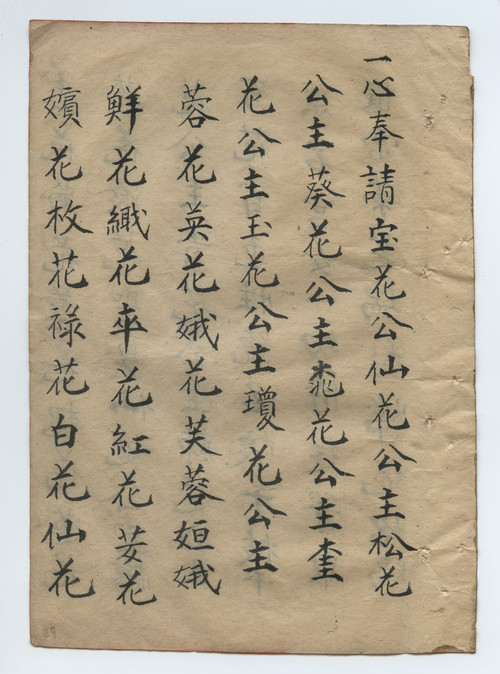 一心奉請宝花公仙花公主松花
公主葵花公主花公主奎
花公主玉花公主瓊花公主
蓉花英花娥花芙蓉姮娥
鮮花花花紅花花
嬪花枚花祿花白花仙花